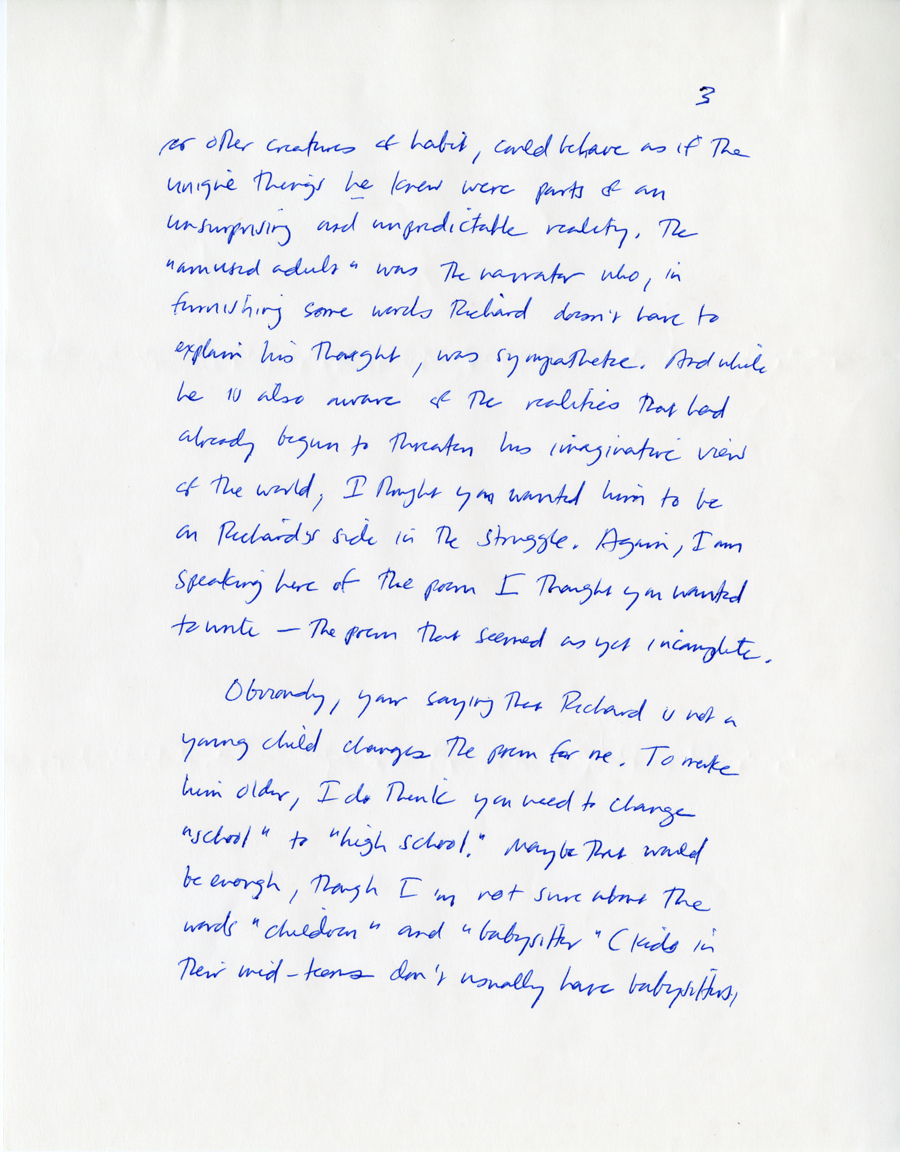 3
or other creatures of habit, could behave as if the
unique things he knew were parts of an
unsurprising and unpredictable reality. The
"amused adult" was the narrator who, in
furnishing some words Richard doesn't have to
explain his thought, was sympathetic. And while
he is also aware of the realities that had
already begun to threaten his imaginative view
of the world, I thought you wanted him to be
on Richard's side in the struggle. Again, I am
speaking here of the poem I thought you wanted
to write — the poem that seemed as yet incomplete.
Obviously, your saying that Richard is not a
young child changes the poem for me. To make
him older, I do think you need to change
"school" to "high school." Maybe that would
be enough, though I'm not sure about the
words "children" and "babysitter" (kids in
their mid-teens don't usually have babysitters,